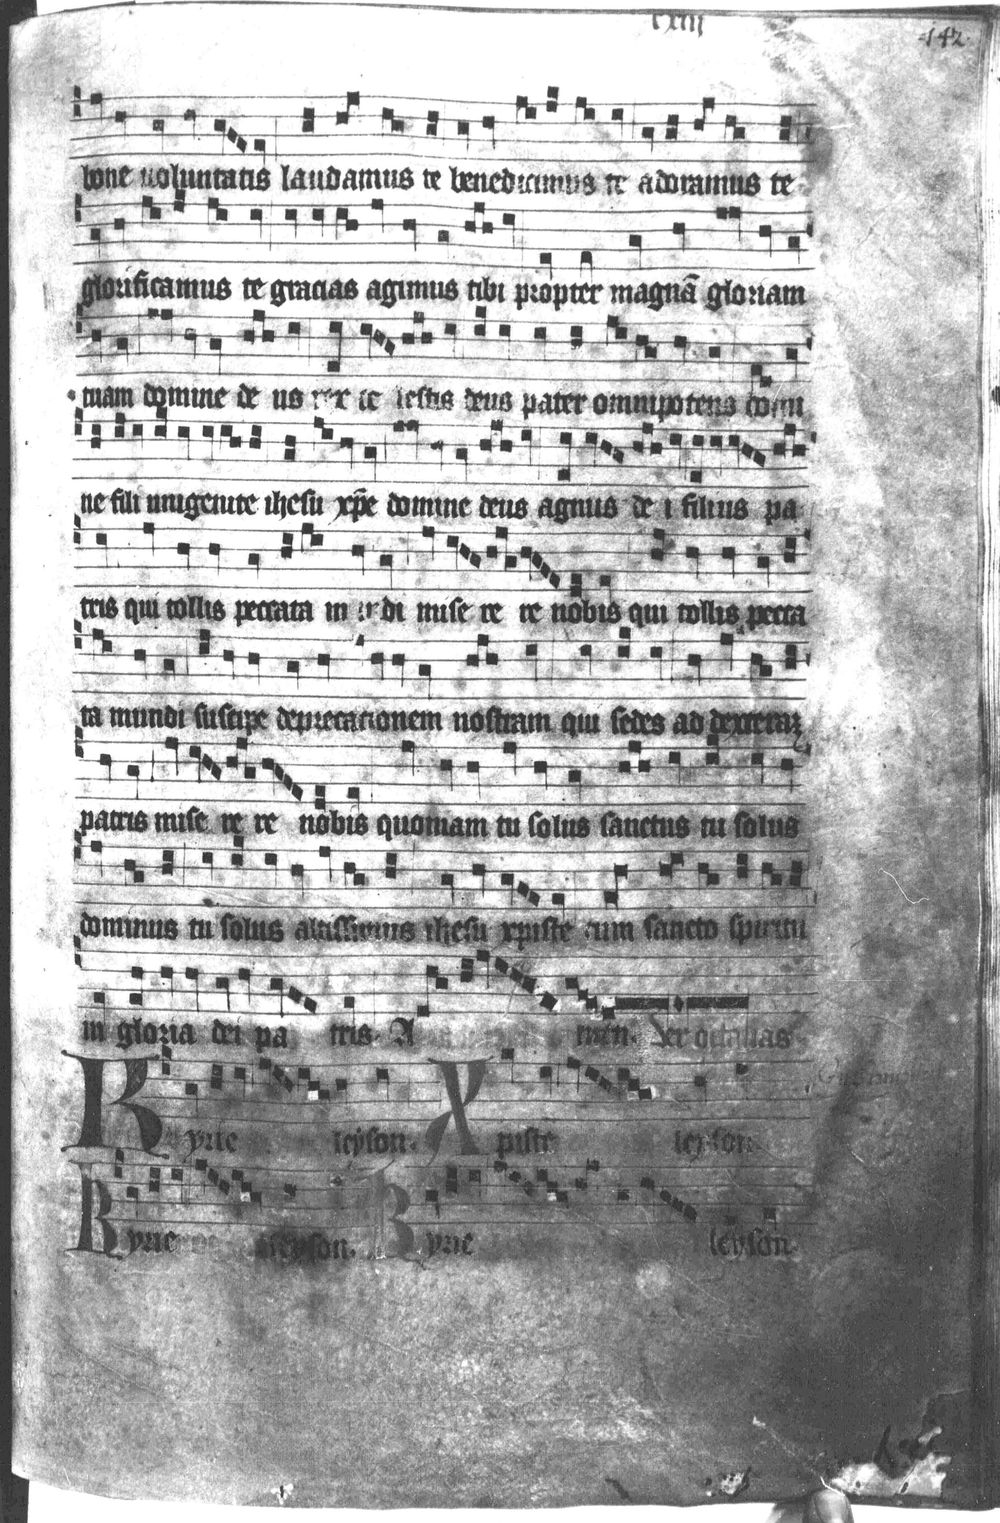 cxiii
142
bone uoluntatis laudamus te benedicimus te adoramus te
glorificamus te gracias agimus tibi propter magnã gloriam
tuam domine de us rex ce lestis deus pater omnipotens domi
ne fili unigenite ihesu xp̃e domine deus agnus de i filius pa
tris qui tollis peccata mundi mise re re nobis qui tollis pecca
ta mundi suscipe deprecacionem nostram qui sedes ad dexteraꝫ
patris mise re re nobis quoniam tu solus sanctus tu solus
dominus tu solus altissimus ihesu xpiste cum sancto spiritu
in gloria dei pa tris. A men.
Kyrie leyson. Xpiste leyson.
Kyrie leyson. Kyrie leyson.